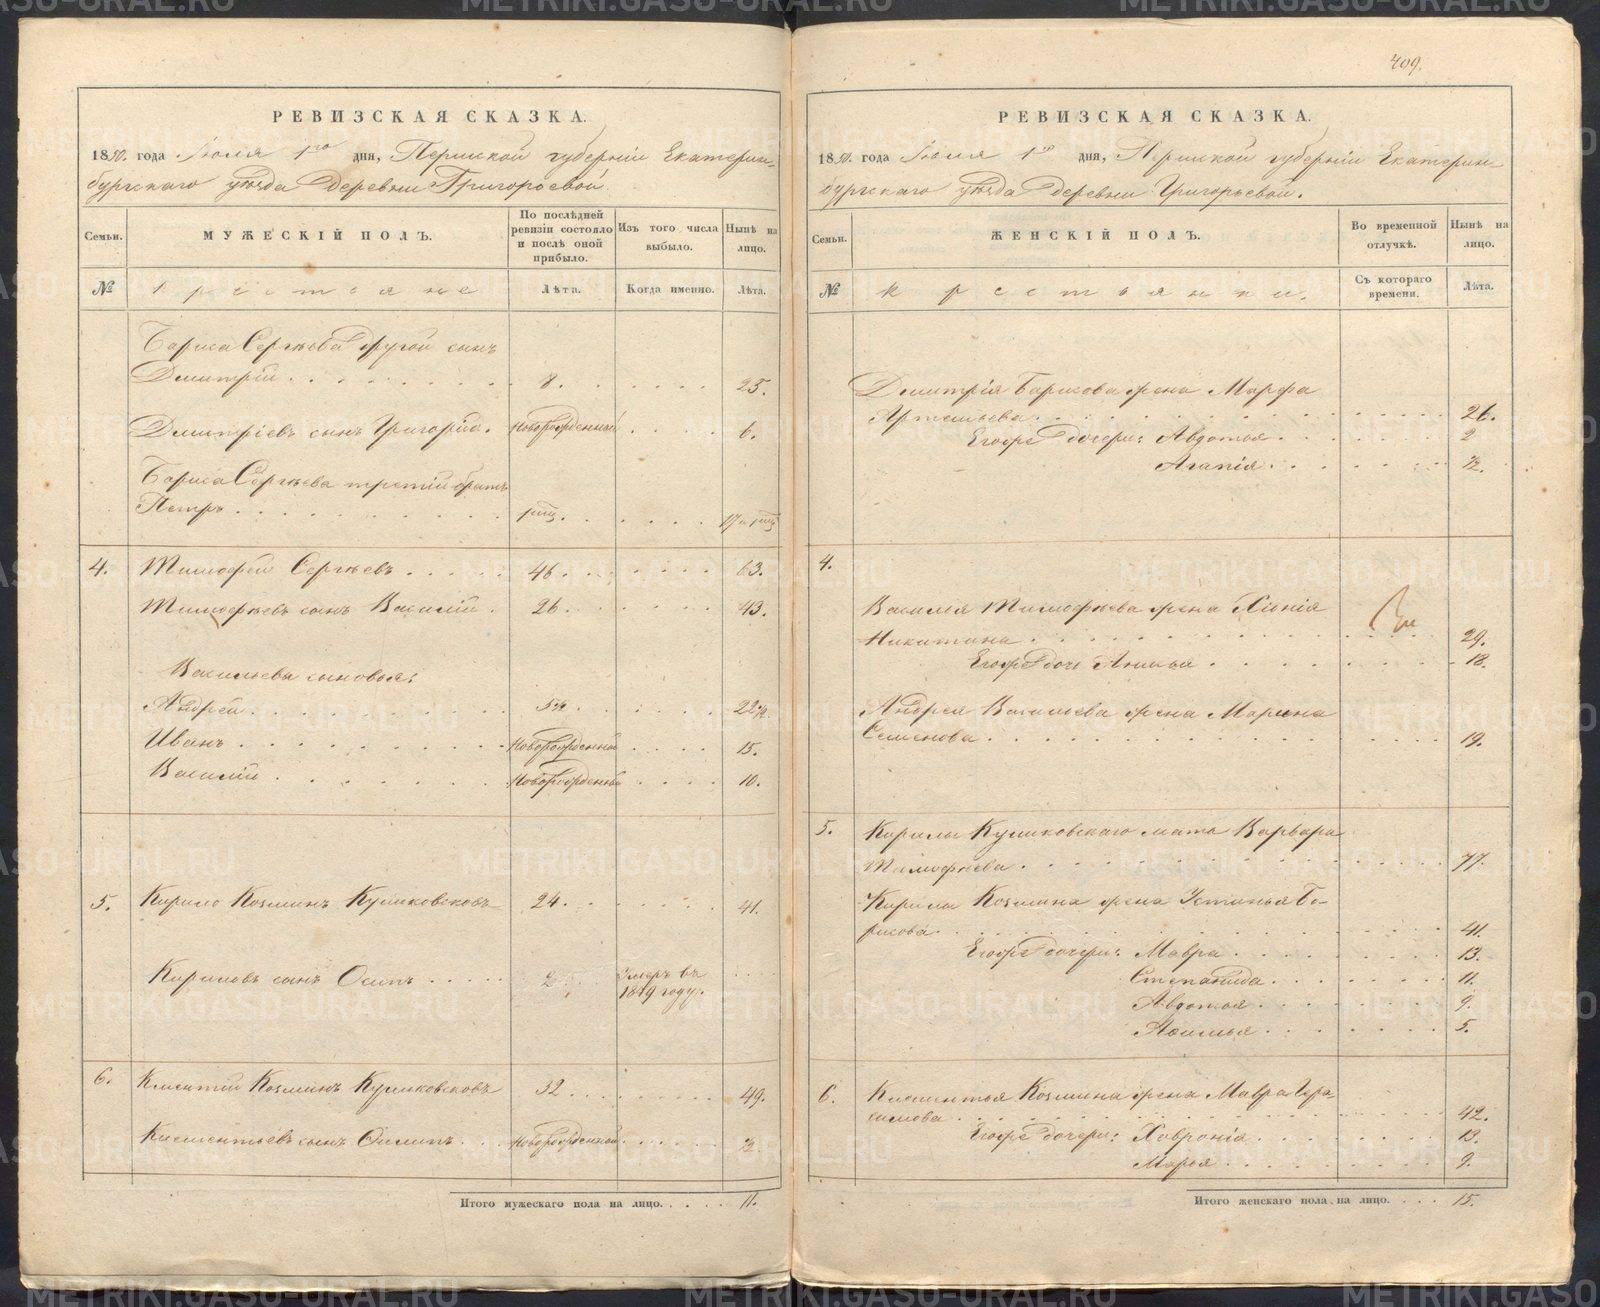 409.
РЕВИЗСКАЯ СКАЗКА.
1850. года Июля 1го дня, Пермской губерніи Екатерин-
бургскаго уѣзда Деревни Григорьевой.
Семьи.
МУЖЕСКІЙ ПОЛЪ.
По послѣдней
ревизіи состояло
и послѣ оной
прибыло.
Изъ того числа
выбыло.
Нынѣ на
лицо.
№
Крестьяне
Лѣта.
Когда именно.
Лѣта.
Бориса Сергѣева другой сынъ
Дмитрій 8. 25.
Дмитріевъ сынъ Григорій. Новорожденный 6.
Бориса Сергѣева третій братъ
Петръ
4. Тимофей Сергѣевъ 46. 63.
Тимофѣевъ сынъ Василій. 26. 43.
Васильевы сыновья:
Андрей 5½ 22½.
Иванъ Новорожденный 15.
Василій Новорожденный 10.
5. Кирило Козминъ Куликовсковъ 24. 41.
Кириловъ сынъ Осипъ 2 Умеръ въ
1849 году.
6. Климентій Козминъ Куликовсковъ 32. 49.
Климентьевъ сынъ Филипъ. Новорожденный ½
Итого мужескаго пола на лицо. 11.
РЕВИЗСКАЯ СКАЗКА.
1850. года Июля 1го дня, Пермской губерніи Екатерин-
бургскаго уѣзда Деревни Григорьевой.
Семьи.
ЖЕНСКІЙ ПОЛЪ.
Во временной
отлучкѣ.
Нынѣ на
лицо.
№
Крестьянки.
Съ котораго
времени.
Лѣта.
Дмитрія Борисова жена Марфа
Артемьева 26.
Егоже дочери: Авдотья 2
Агапія ½.
4.
Василья Тимофѣева жена Хіонія
Никитина 29.
Егоже дочь Анисья 18.
Андрея Васильева жена Марина
Семенова 19.
5. Кирилы Куликовскаго мать Варвара
Тимофѣева 77.
Кирилы Козмина жена Устинья Бо-
рисова 41.
Егоже дочери: Мавра 13.
Степанида 11.
Авдотья 9.
Афимья 5.
6. Климентья Козмина жена Мавра Гера-
симова 42.
Егоже дочери: Хавронія 13.
Марья 9.
Итого женскаго пола на лицо. 15.
METRIKI.GASO-URAL.RU